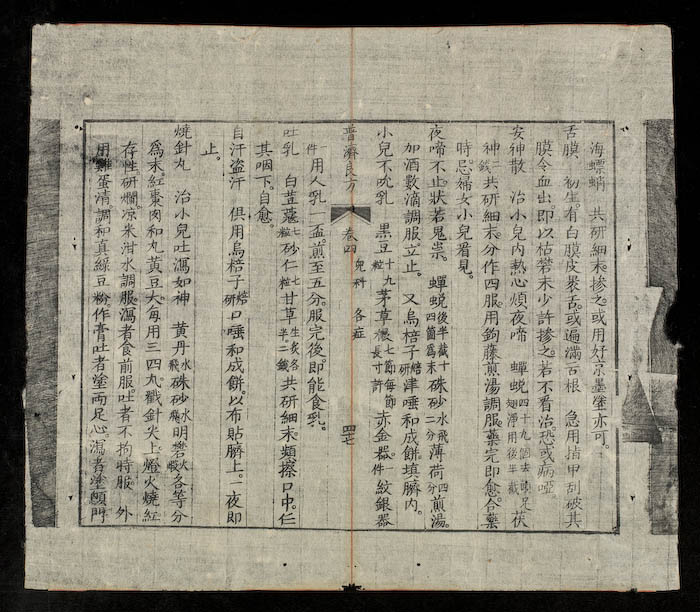 海螵蛸 共研細末摻之或用好京墨塗亦可。
舌膜。初生有白膜皮裹舌或遍滿舌根 急用指甲刮破其
膜令血出即以枯礬末少許摻之若不看治恐或病啞
安神散 治小兒內熱心煩夜啼 蟬蛻四十九個去頭足翅淨用後半截 茯
神二錢共研細末分作四服用鉤藤煎湯調服藥完即愈合藥
時忌婦女小兒看見。
夜啼不止狀若鬼祟。 蟬蛻後半截十四箇為末 硃砂水飛二分 薄荷四分煎湯。
加酒數滴調服立止。 又烏棓子焙研津唾和成餅填臍內。
小兒不吮乳 黑豆十九粒 茅草根七節每節長寸許 赤金器一件 紋銀器
普濟良方 卷四 兒科 各症 四七
一件 用人乳一盃煎至五分服完後即能食乳。
吐乳 白荳蔻七粒 砂仁七粒 甘草生炙各半二錢 共研細末頻擦口中任
其咽下自愈。
自汗盜汗 俱用烏棓子焙研口唾和成餅以布貼臍上。一夜即
止。
燒針丸 治小兒吐瀉如神 黃丹水飛 硃砂水飛 明礬火煅各等分
為末紅棗肉和丸黃豆大每用三四丸戳針尖上燈火燒紅
存性研爛涼米泔水調服瀉者食前服吐者不拘時服。 外
用雞蛋清調和真綠豆粉作膏吐者塗兩足心瀉者塗顖門